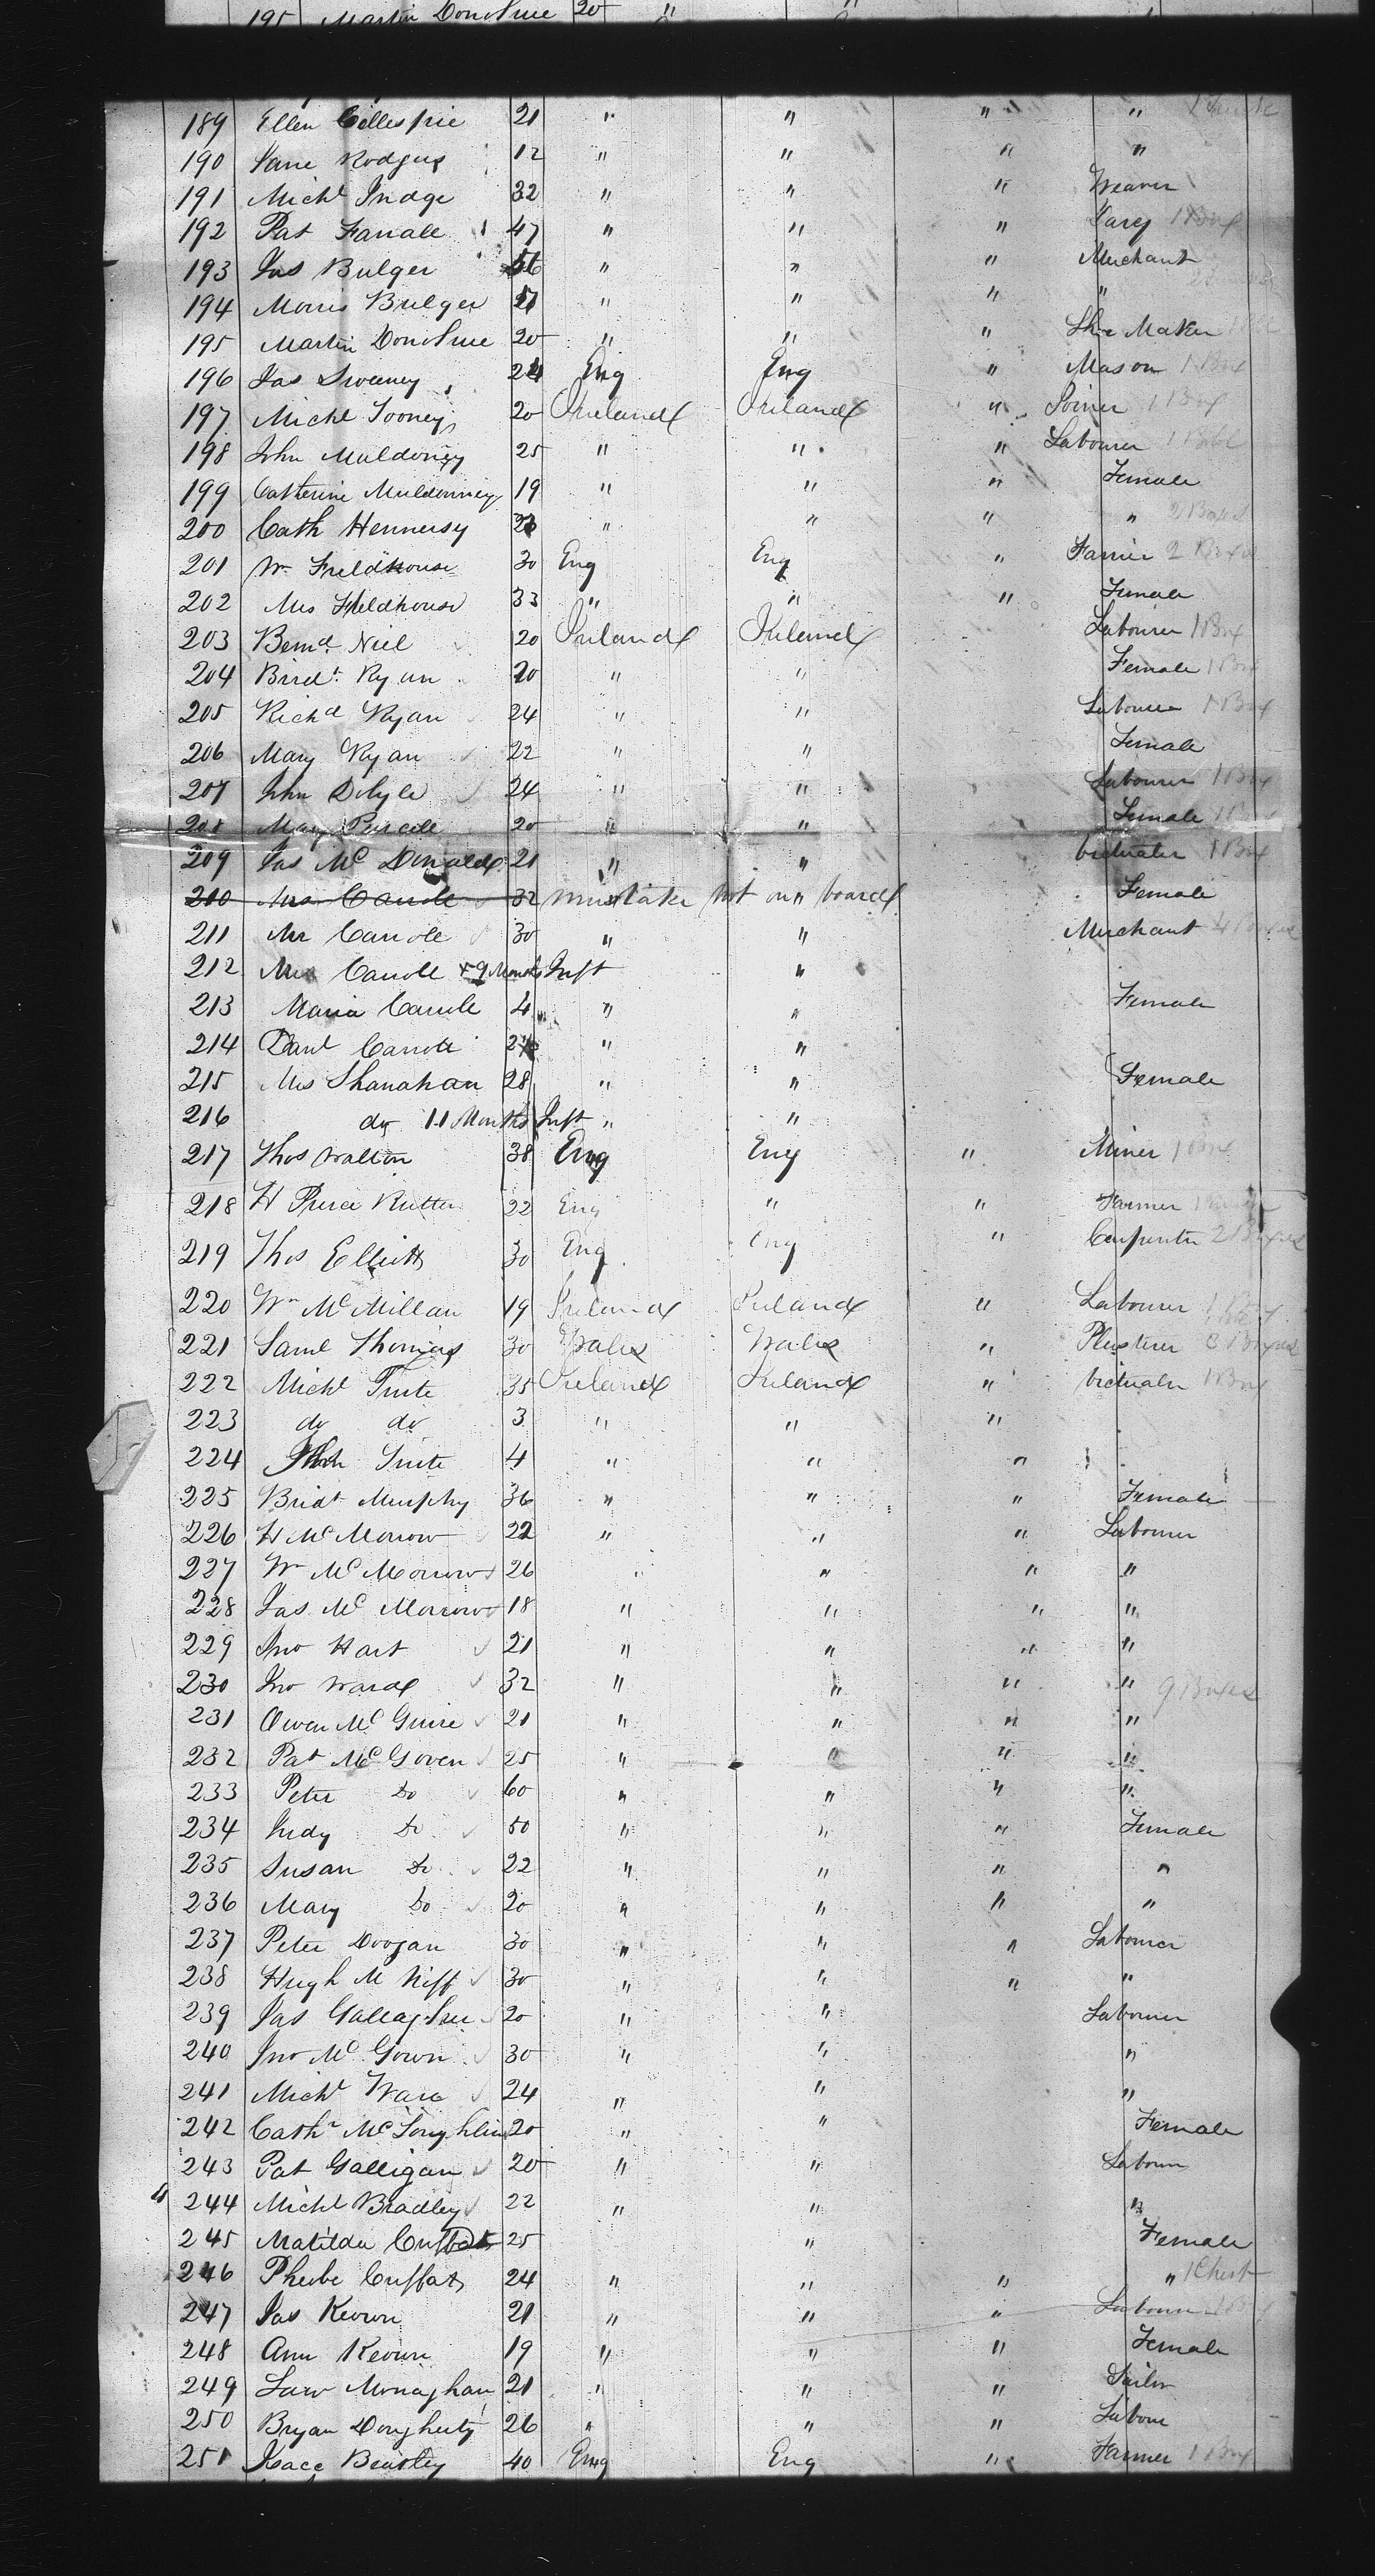 195 Martin Donohue 20 "
189 Ellen Gillespie 21 " " " "
190 Jane Rodgers 12 " " " "
191 Michl Judge 32 " " " Weaver
192 Pat Farrale 47 " " " 1 Box
193 Jas Bulger 56 " " " Merchant
194 Morris Bulger " " " "
195 Martin Donohue 20 " " " Shoe Maker
196 Jas Sweeney 24 Eng Eng " Mason 1 Box
197 Michl Tooney 20 Ireland Ireland " Joiner 1 Box
198 John Muldoney 25 " " " Labourer
199 Catherine Muldenney 19 " " " Female
200 Cath Hennersy " " " " 2 Boxes
201 Wm Fieldhouse 30 Eng Eng " Farrier 2 Boxes
202 Mrs Fieldhouse 33 " " " Female
203 Bernd Niel 20 Ireland Ireland Labourer 1 Box
204 Birdt Ryan 20 " " Female 1 Box
205 Richd Ryan 24 " " Labourer 1 Box
206 Mary Ryan 22 " " Female
207 John Doyle 24 " " Labourer 1 Box
208 Mary Purcell 20 " " Female
209 Jas Mc Donald 21 " " Victualer 1 Box
210 Mrs Carrole 32 mistake not on board Female
211 Mr Carrole 30 " " Merchant
212 Mrs Carrole + 9 Months Inft "
213 Maria Carrole 4 " " Female
214 Danl Carrole 2 " "
215 Mrs Shanahan 28 " " Female
216 do 11 Months Inft " "
217 Thos Walton 38 Eng Eng " Miner
218 H Pierce Rutter 22 Eng " " Farmer
219 Thos Elliott 30 Eng Eng " Carpenter 2 Boxes
220 Wm McMillan 19 Ireland Ireland " Labourer
221 Saml Thomas 30 Wales Wales " Plasterer 3 Boxes
222 Michl Tuite 35 Ireland Ireland " Victualer 1 Box
223 do do 3 " " "
224 Tuite 4 " " "
225 Bridt Murphy 36 " " " Female
226 H McMorrow 22 " " " Labourer
227 Wm Mc Morrow 26 " " " "
228 Jas Mc Morrow 18 " " " "
229 Jno Hart 21 " " " "
230 Jno Ward 32 " " " " 9 Boxes
231 Owen Mc Guire 21 " " " "
232 Pat McGoven 25 " " " "
233 Peter Do 60 " " " "
234 Judy Do 50 " " " Female
235 Susan Do 22 " " " "
236 Mary Do 20 " " " "
237 Peter Doogan 30 " " " Labourer
238 Hugh M Niff 30 " " " "
239 Jas Gallagher 20 " " Labourer
240 Jno Mc Gown 30 " " "
241 Michl Ware 24 " " "
242 Cathr McLoughlin 20 " " Female
243 Pat Galligan 20 " " Labourr
" 244 Michl Bradley 22 " " "
245 Matilda 25 " Female
246 Phebe Cuffats 24 " " " " 1 Chest
247 Jas Keown 21 " " " Labourr
248 Ann Keown 19 " " " Female
249 Law Monaghan 21 " " " Tailor
250 Bryan Dougherty 26 " " " Labour
251 Isace Beasley 40 Eng Eng " Farmer 1 Box